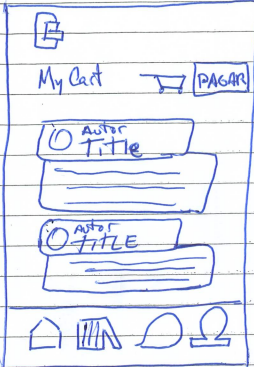 My Cart PAGAR
AUTOR
TITLE
AUTOR
TITLE